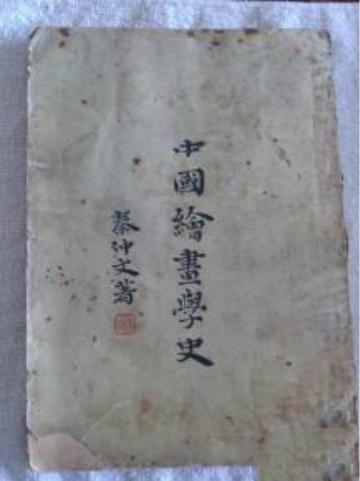 中國繪畫學史
秦仲文著